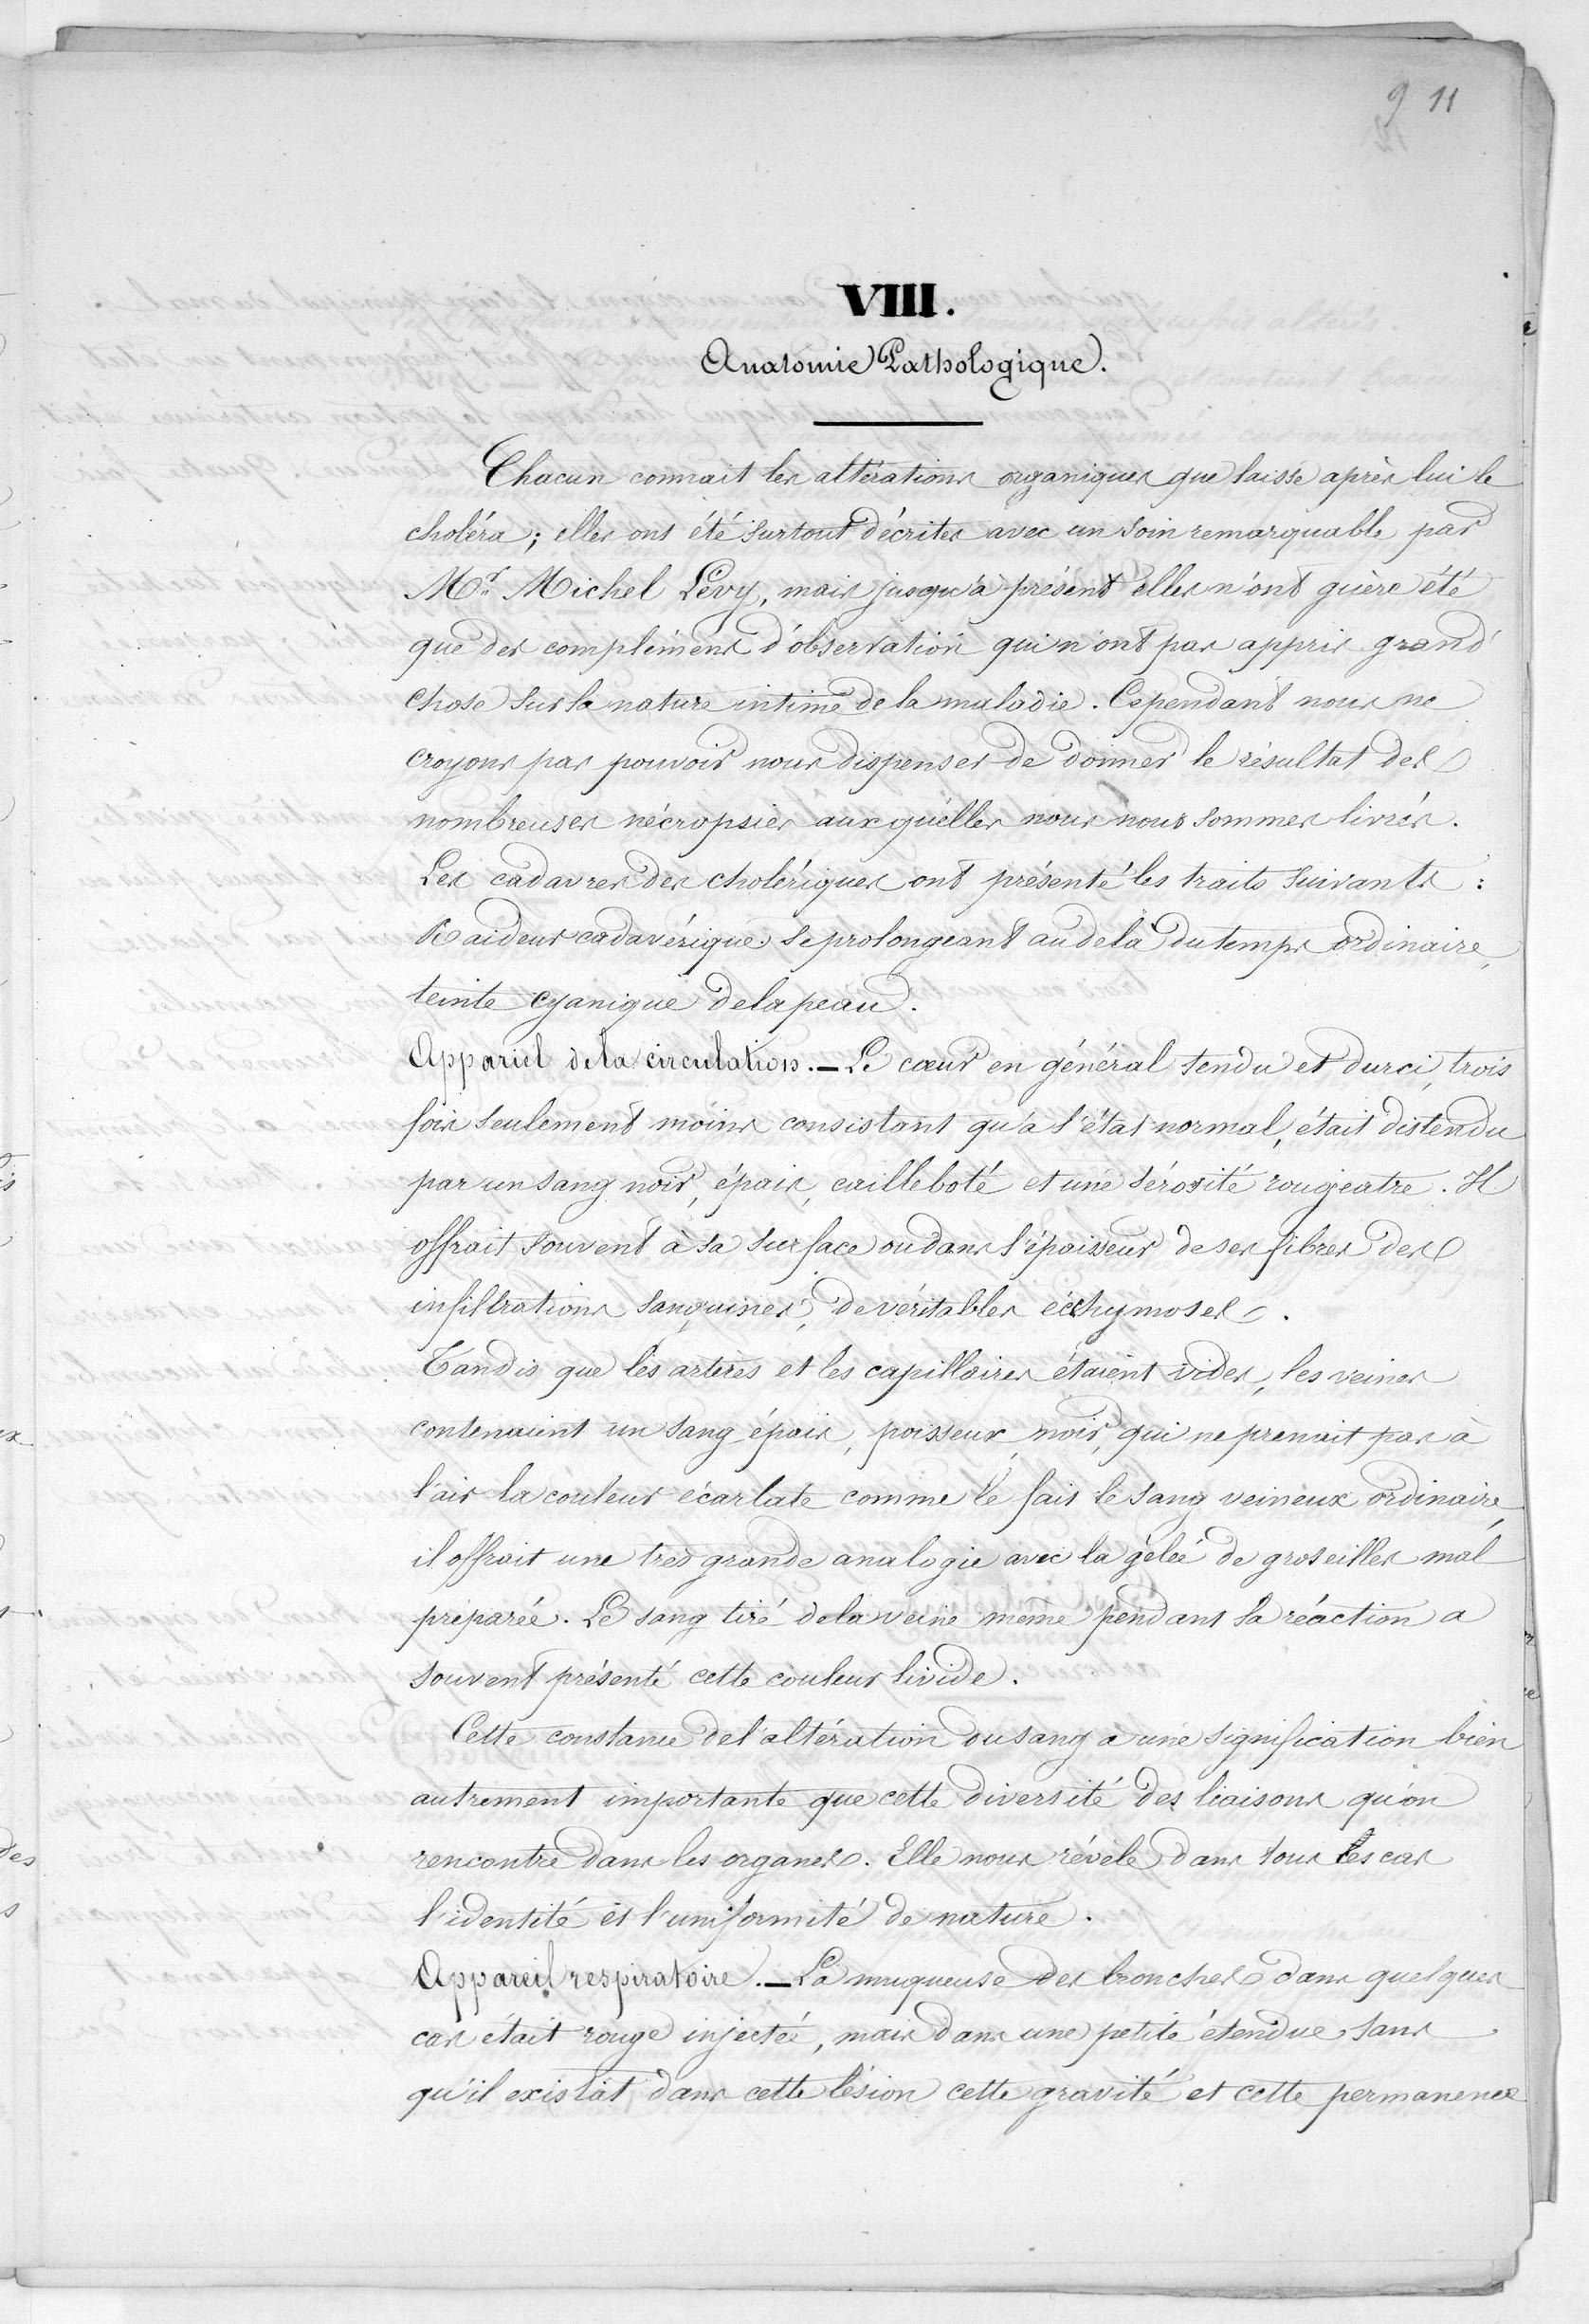 9 11
VIII.
Anatomie Pathologique.
Chacun connait les altérations organiques que laisse après lui le
choléra; elles ont été surtout décrites avec un soin remarquable par
Mr. Michel Lévy, mais jusqu'à présent elles n'ont guère été
que des compléments d'observation qui n'ont pas appris grand'
chose sur la nature intime de la maladie. Cependant nous ne
croyons pas pouvoir nous dispenser de donner le résultat des
nombreuses nécropsies auxquelles nous nous sommes livrés.
Les cadavres des cholériques ont présenté les traits suivants :
Raideur cadavérique se prolongeant au delà du temps ordinaire,
teinte cyanique de la peau.
Appareil de la circulation. — Le cœur en général tendu et durci, trois
fois seulement moins consistant qu'à l'état normal, était distendu
par un sang noir, épais, cailleboté et une sérosité rougeatre. Il
offrait souvent à sa surface ou dans l'épaisseur de ses fibres des
infiltrations sanguines, de véritables écchymoses.
Tandis que les artères et les capillaires étaient vides, les veines
contenaient un sang épais, poisseux, noir, qui ne prenait pas à
l'air la couleur écarlate comme le fait le sang veineux ordinaire,
il offrait une très grande analogie avec la gelée de groseilles mal
préparée. Le sang tiré de la veine même pendant la réaction a
souvent présenté cette couleur livide.
Cette constance de l'altération du sang a une signification bien
autrement importante que cette diversité des liaisons qu'on
rencontre dans les organes. Elle nous révèle dans tous les cas
l'identité et l'uniformité de nature.
Appareil respiratoire. — La muqueuse des bronches dans quelques
cas était rouge injectée, mais dans une petite étendue sans
qu'il existât dans cette lésion cette gravité et cette permanence